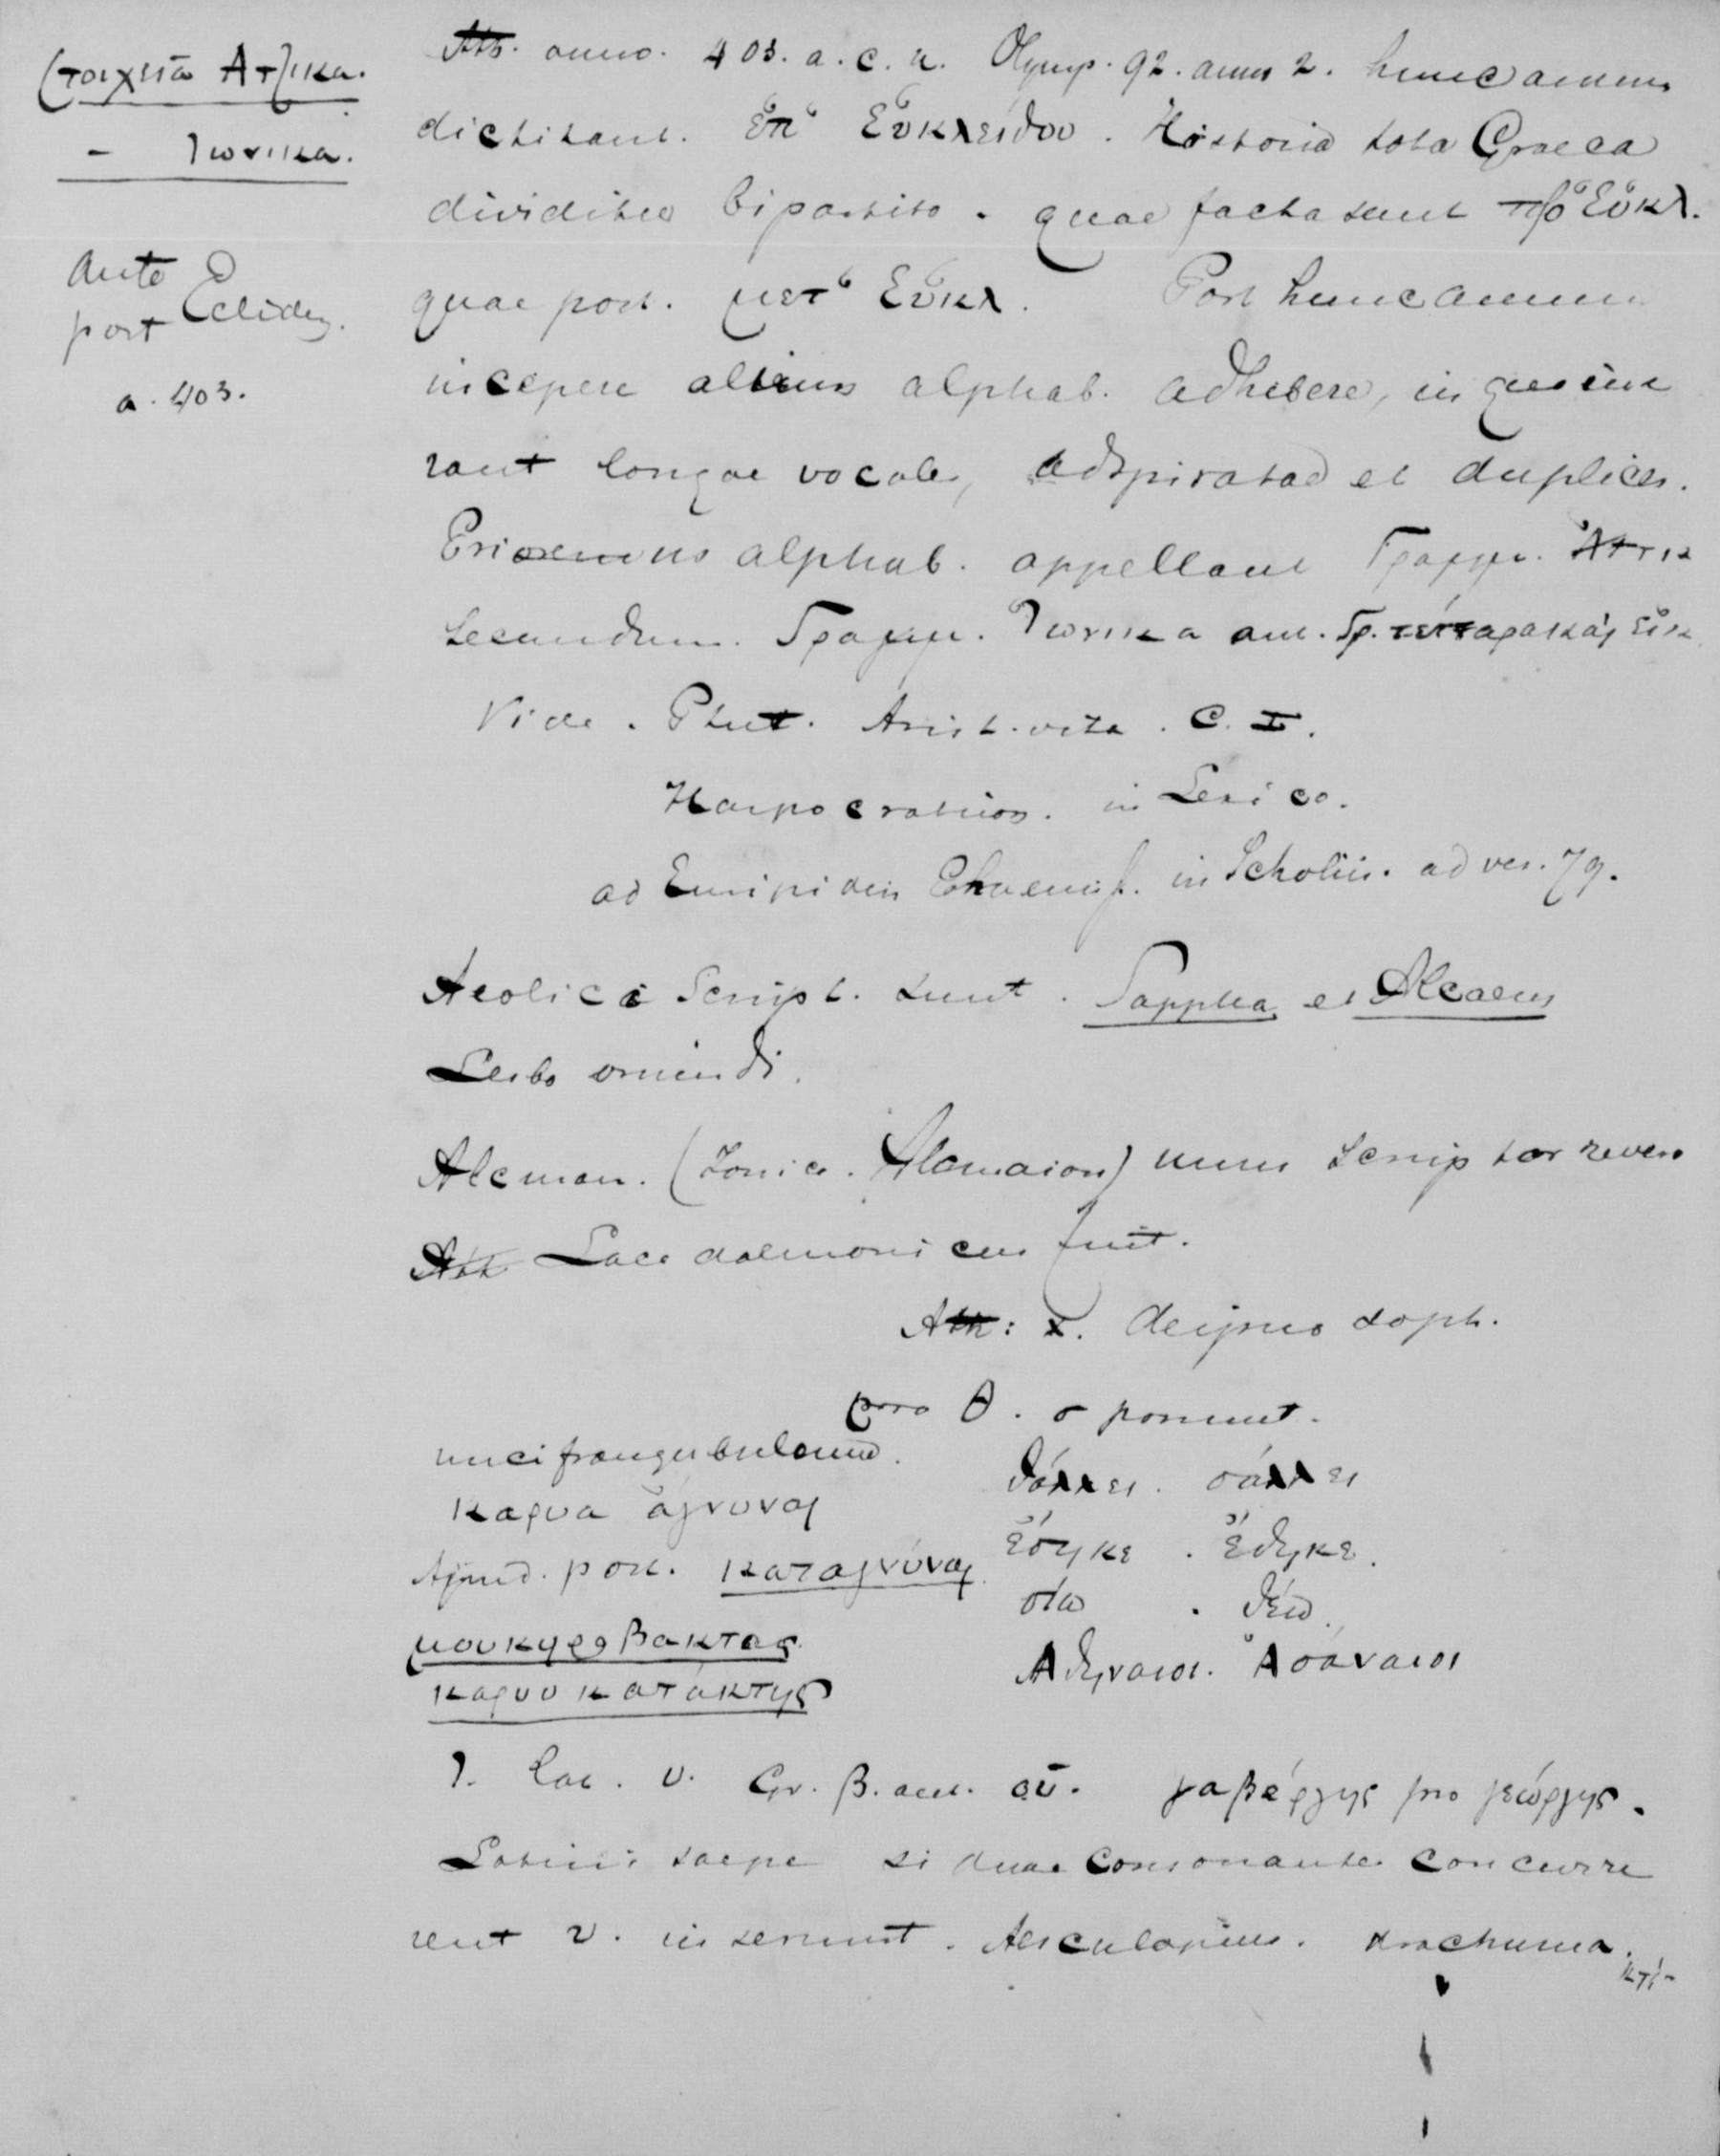 Στοιχεῖα Ἀττικα.
– Ἰωνικα.
Ante
post Eclidem.
a. 403.
Ath. anno. 403. a. C. n. Olymp. 92. anno 2. hunc annum
dictitant. ἐπ' Εὐκλείδου. Historia tota Graeca
dividitur bipartito. quae facta sunt πρὸ Εὐκλ.
quae post. μετ' Εὐκλ. Post hunc annum
incepere alterum alphab. adhibere, in quo ine
rant longae vocales, adspiratae et duplices.
alphab. appellant Γραμμ. Ἀττικ
secundum. Γραμμ. Ἰωνικα aut. Γρ. τέτταρα καὶ εἴκ
Vide. Plut. Arist. vita. C. I.
Harpocration. in Lexico.
ad Euripidem in Scholiis. ad ver. 79.
Aeolici Script. sunt. Sappho et Alcaeus
Lesbo oriundi.
Alcman. (Ionice. Alcmaion) unus scriptor revera
Ath Lacedaemonicus fuit.
Ath: X. deipnosoph.
pro θ. σ ponunt.
nucifrangibulum.
καρυα ἀγνυναι
Apud. post. καταγνύναι
μουκηροβακτας
καρυοκατάκτης
θάλλει. σάλλει
ἔσηκε. ἔθηκε.
σίω. θέω.
Αθηναιοι. Ἀσάναιοι
1. Lat. v. Gr. β. aut. οὐ. γαβέργης pro γεώργης.
Latini saepe si duae consonantes concurre
rent v. inserunt. Aesculapius. drachuma.
κτλ-